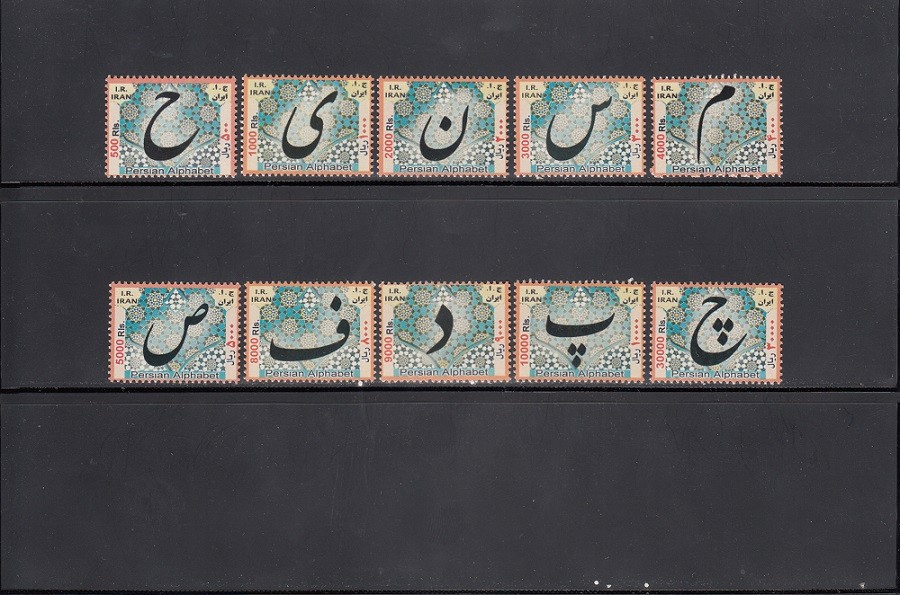 I.R. IRAN ج.ا. ایران
ح
500 Rls. ۵۰۰ ریال
Persian Alphabet
I.R. IRAN ج.ا. ایران
ی
1000 Rls. ۱۰۰۰ ریال
Persian Alphabet
I.R. IRAN ج.ا. ایران
ن
2000 Rls. ۲۰۰۰ ریال
Persian Alphabet
I.R. IRAN ج.ا. ایران
س
3000 Rls. ۳۰۰۰ ریال
Persian Alphabet
I.R. IRAN ج.ا. ایران
م
4000 Rls. ۴۰۰۰ ریال
Persian Alphabet
I.R. IRAN ج.ا. ایران
ص
5000 Rls. ۵۰۰۰ ریال
Persian Alphabet
I.R. IRAN ج.ا. ایران
ف
8000 Rls. ۸۰۰۰ ریال
Persian Alphabet
I.R. IRAN ج.ا. ایران
د
9000 Rls. ۹۰۰۰ ریال
Persian Alphabet
I.R. IRAN ج.ا. ایران
پ
10000 Rls. ۱۰۰۰۰ ریال
Persian Alphabet
I.R. IRAN ج.ا. ایران
چ
30000 Rls. ۳۰۰۰۰ ریال
Persian Alphabet